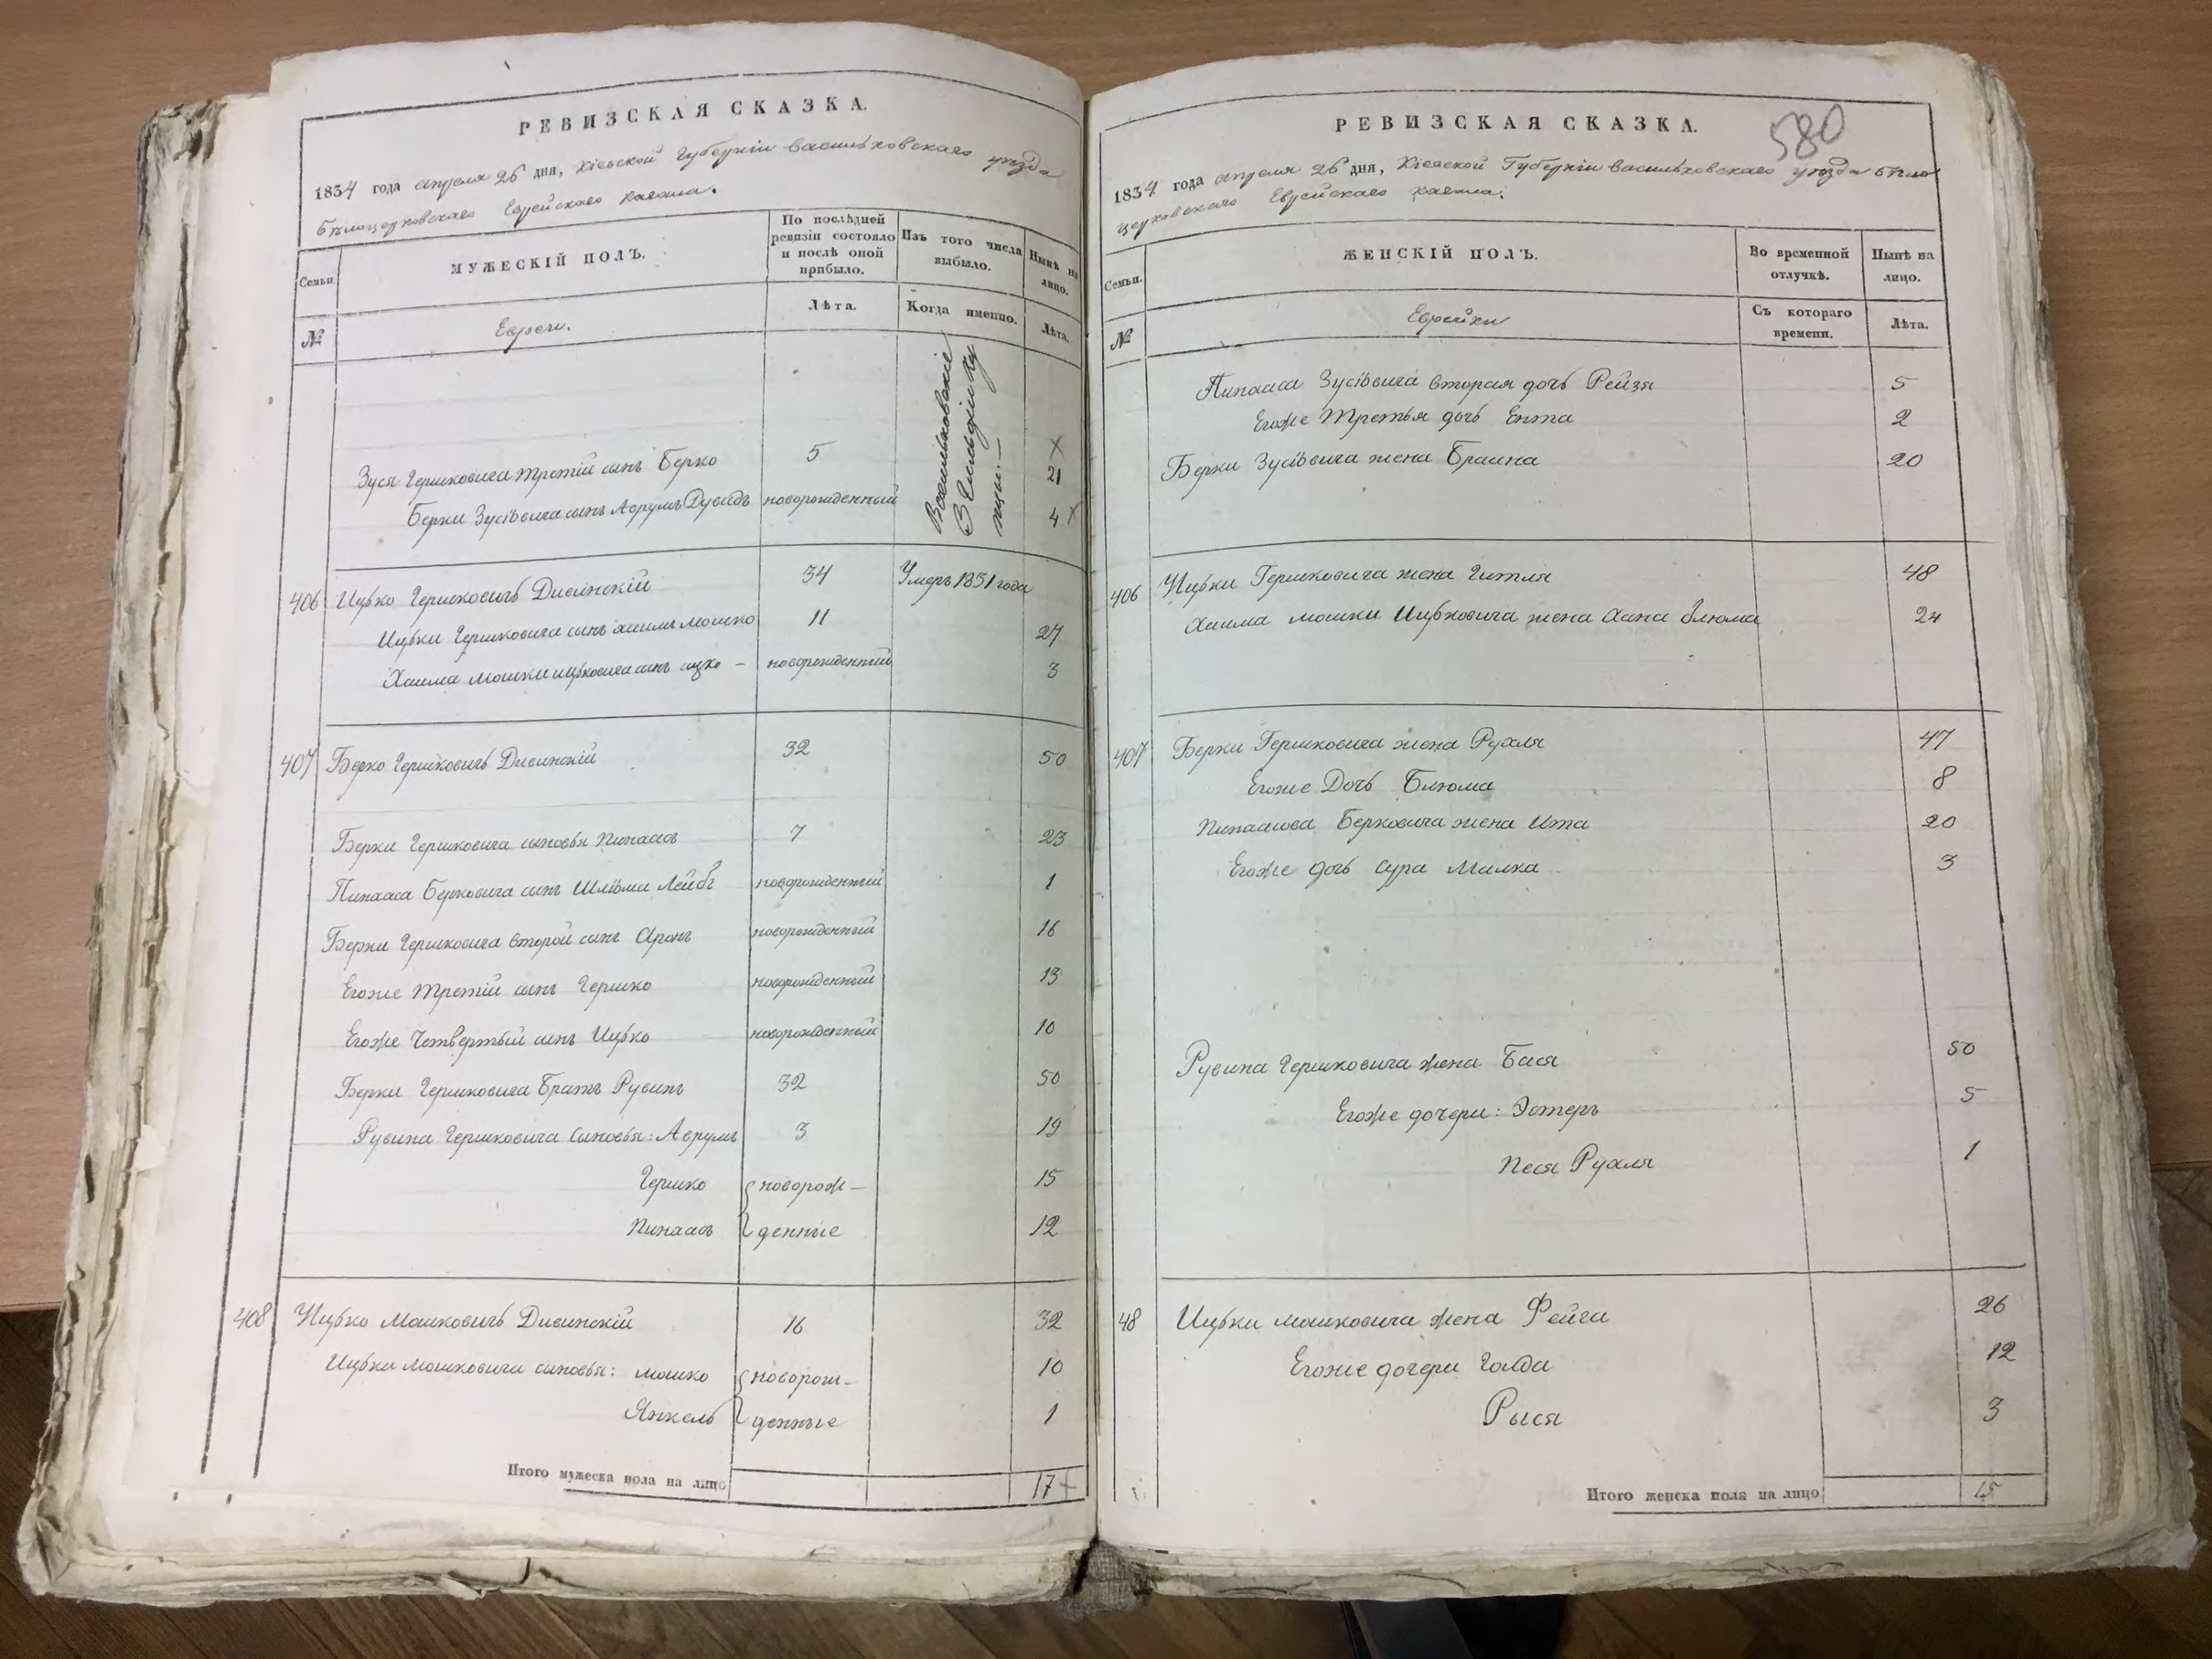 РЕВИЗСКАЯ СКАЗКА.
1834 года апреля 26 дня, Кіевской Губерніи Васильковскаго уѣзда
Бѣлоцерковскаго Еврейскаго кагала.
Семьи.
МУЖЕСКІЙ ПОЛЪ.
По послѣдней ревизіи состояло и послѣ оной прибыло.
Изъ того числа выбыло.
Нынѣ на лицо.
№
Евреи.
Лѣта.
Когда именно.
Лѣта.
Васильковские
Зуся Гершковича третій сынъ Берко 5 21
Берки Зусіовича сынъ Аврумъ Дувидъ новорожденный 4
406 Ицько Гершковичъ Дивинскій 34 Умеръ 1831 года
Ицьки Гершковича сынъ Хаимъ Мошко 11 27
Хаима Мошки Ицьковича сынъ Ицко - новорожденный 3
407 Берко Гершковичъ Дивинскій 32 50
Берки Гершковича сыновья Пинхасъ 7 23
Пинхаса Берковича сынъ Шліома Лейбъ новорожденный 1
Берки Гершковича второй сынъ Аронъ новорожденный 16
Егоже третій сынъ Гершко новорожденный 13
Егоже Четвертый сынъ Ицько новорожденный 10
Берки Гершковича Братъ Рувинъ 32 50
Рувина Гершковича Сыновья: Аврумъ 3 19
Гершко новорож- 15
Пинхасъ денные 12
408 Ицько Мошковичъ Дивинскій 16 32
Ицьки Мошковича сыновья: Мошко новорож- 10
Янкель денные 1
Итого мужеска пола на лицо 17
580
РЕВИЗСКАЯ СКАЗКА.
1834 года апреля 26 дня, Кіевской Губерніи Васильковскаго уѣзда Бѣло
церковскаго Еврейскаго кагала.
Семьи.
ЖЕНСКІЙ ПОЛЪ.
Во временной отлучкѣ.
Нынѣ на лицо.
№
Еврейки
Съ котораго времени.
Лѣта.
Пинхаса Зусіовича вторая дочь Рейзя 5
Егоже Третья дочь Ента 2
Берки Зусіовича жена Браина 20
406 Ицьки Гершковича жена Гитля 48
Хаима Мошки Ицьковича жена Хана Блюма 24
407 Берки Гершковича жена Рухля 47
Егоже Дочь Блюма 8
Пинхасова Берковича жена Ита 20
Егоже дочь Сура Малка 3
Рувина Гершковича жена Бася 50
Егоже дочери: Эстеръ 5
Песя Рухля 1
48 Ицьки Мошковича жена Фейга 26
Егоже дочери Голда 12
Рыся 3
Итого женска пола на лицо 15